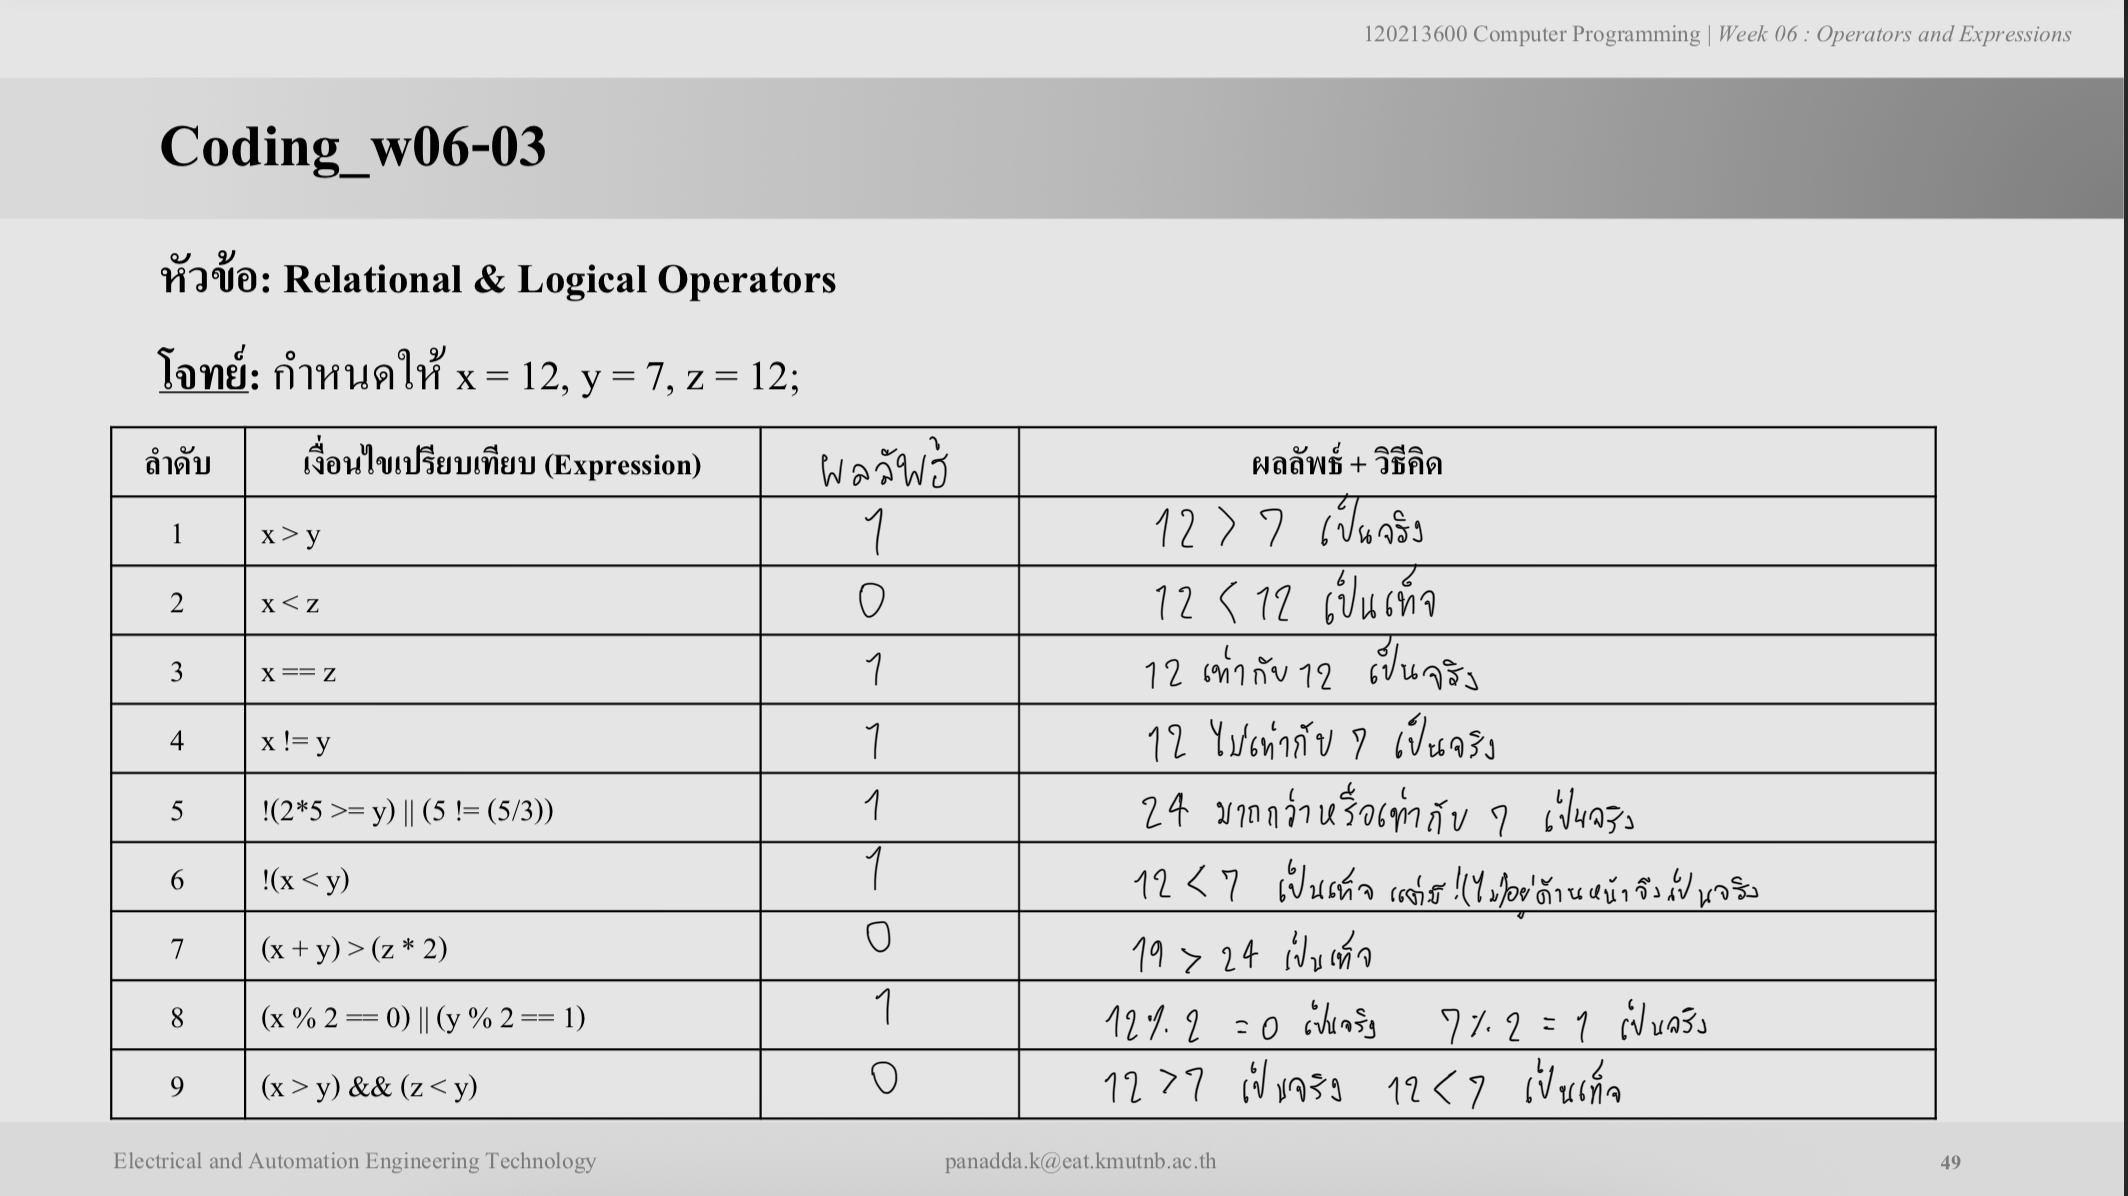 120213600 Computer Programming | Week 06 : Operators and Expressions
Coding_w06-03
หัวข้อ: Relational & Logical Operators
โจทย์: กำหนดให้ x = 12, y = 7, z = 12;
ลำดับ เงื่อนไขเปรียบเทียบ (Expression) ผลลัพธ์ ผลลัพธ์ + วิธีคิด
1 x > y 1 12 > 7 เป็นจริง
2 x < z 0 12 < 12 เป็นเท็จ
3 x == z 1 12 เท่ากับ 12 เป็นจริง
4 x != y 1 12 ไม่เท่ากับ 7 เป็นจริง
5 !(2*5 >= y) || (5 != (5/3)) 1 24 มากกว่าหรือเท่ากับ 7 เป็นจริง
6 !(x < y) 1 12 < 7 เป็นเท็จ แต่มี !(ไม่)อยู่ด้านหน้าจึงเป็นจริง
7 (x + y) > (z * 2) 0 19 > 24 เป็นเท็จ
8 (x % 2 == 0) || (y % 2 == 1) 1 12 % 2 = 0 เป็นจริง 7 % 2 = 1 เป็นจริง
9 (x > y) && (z < y) 0 12 > 7 เป็นจริง 12 < 7 เป็นเท็จ
Electrical and Automation Engineering Technology panadda.k@eat.kmutnb.ac.th 49